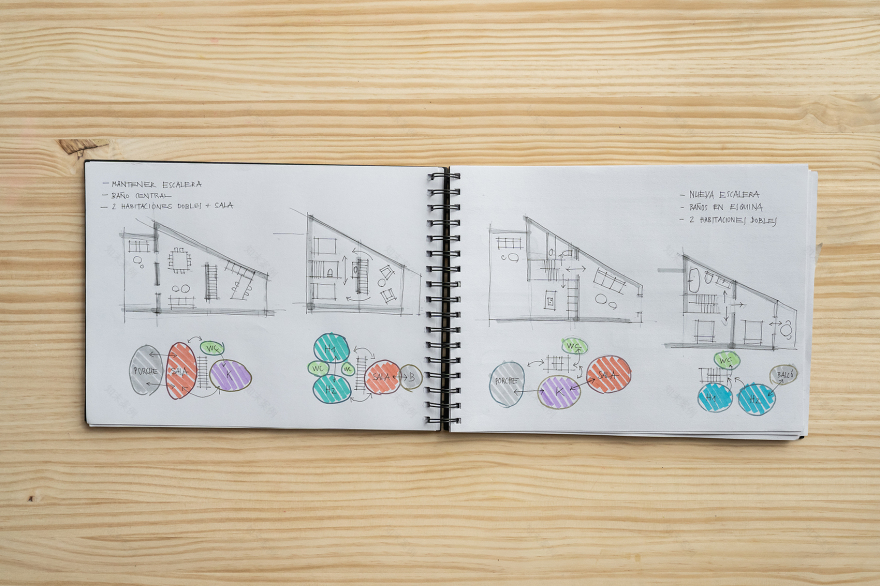 - MANTENER ESCALERA
- BAÑO CENTRAL
- 2 HABITACIONES DOBLES + SALA
PORCHE
SALA
WC
K
H1
WC
H2
SALA
B
- NUEVA ESCALERA
- BAÑOS EN ESQUINA
- 2 HABITACIONES DOBLES
PORCHE
WC
K
SALA
WC
H1
H2
BALCÓ